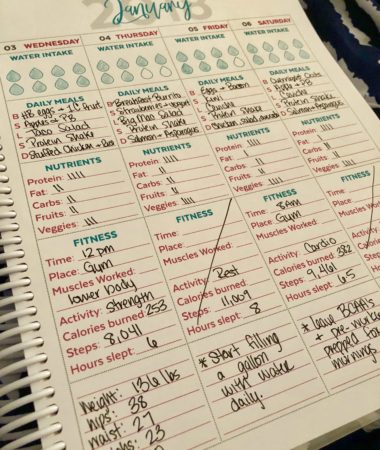 2018
January
03 WEDNESDAY 04 THURSDAY 05 FRIDAY 06 SATURDAY
WATER INTAKE WATER INTAKE WATER INTAKE WATER INTAKE
DAILY MEALS DAILY MEALS DAILY MEALS DAILY MEALS
B HB eggs + fruit B Breakfast Burrito B Eggs + Bacon B Overnight Oats
S Apple + PB S Strawberries + yogurt S S Apple + PB
L Taco Salad L Big Mac Salad L Quiche L Quiche
S Protein Shake S Protein Shake S Protein Shake S Protein Shake
D Stuffed Chicken + D Salmon + Asparagus D Chicken D Salmon + Asparagus
NUTRIENTS NUTRIENTS NUTRIENTS NUTRIENTS
Protein: Protein: Protein: Protein:
Fat: Fat: Fat: Fat:
Carbs: Carbs: Carbs: Carbs:
Fruits: Fruits: Fruits: Fruits:
Veggies: Veggies: Veggies: Veggies:
FITNESS FITNESS FITNESS FITNESS
Time: 12 pm Time: Time: 8AM Time:
Place: Gym Place: Place: Gym Place:
Muscles Worked: Muscles Worked: Muscles Worked: Muscles
lower body
Activity: Strength Activity: Rest Activity: Cardio Activity:
Calories burned: 253 Calories burned: Calories burned: 382 Calories
Steps: 8,041 Steps: 11,009 Steps: 9,461 Steps:
Hours slept: 6 Hours slept: 8 Hours slept: 6.5 Hours
weight: 136 lbs
hips: 38
waist: 27
23
* Start filling
a gallon
with water
daily.
* leave BCAA's
+ pre-
prepped for
mornings